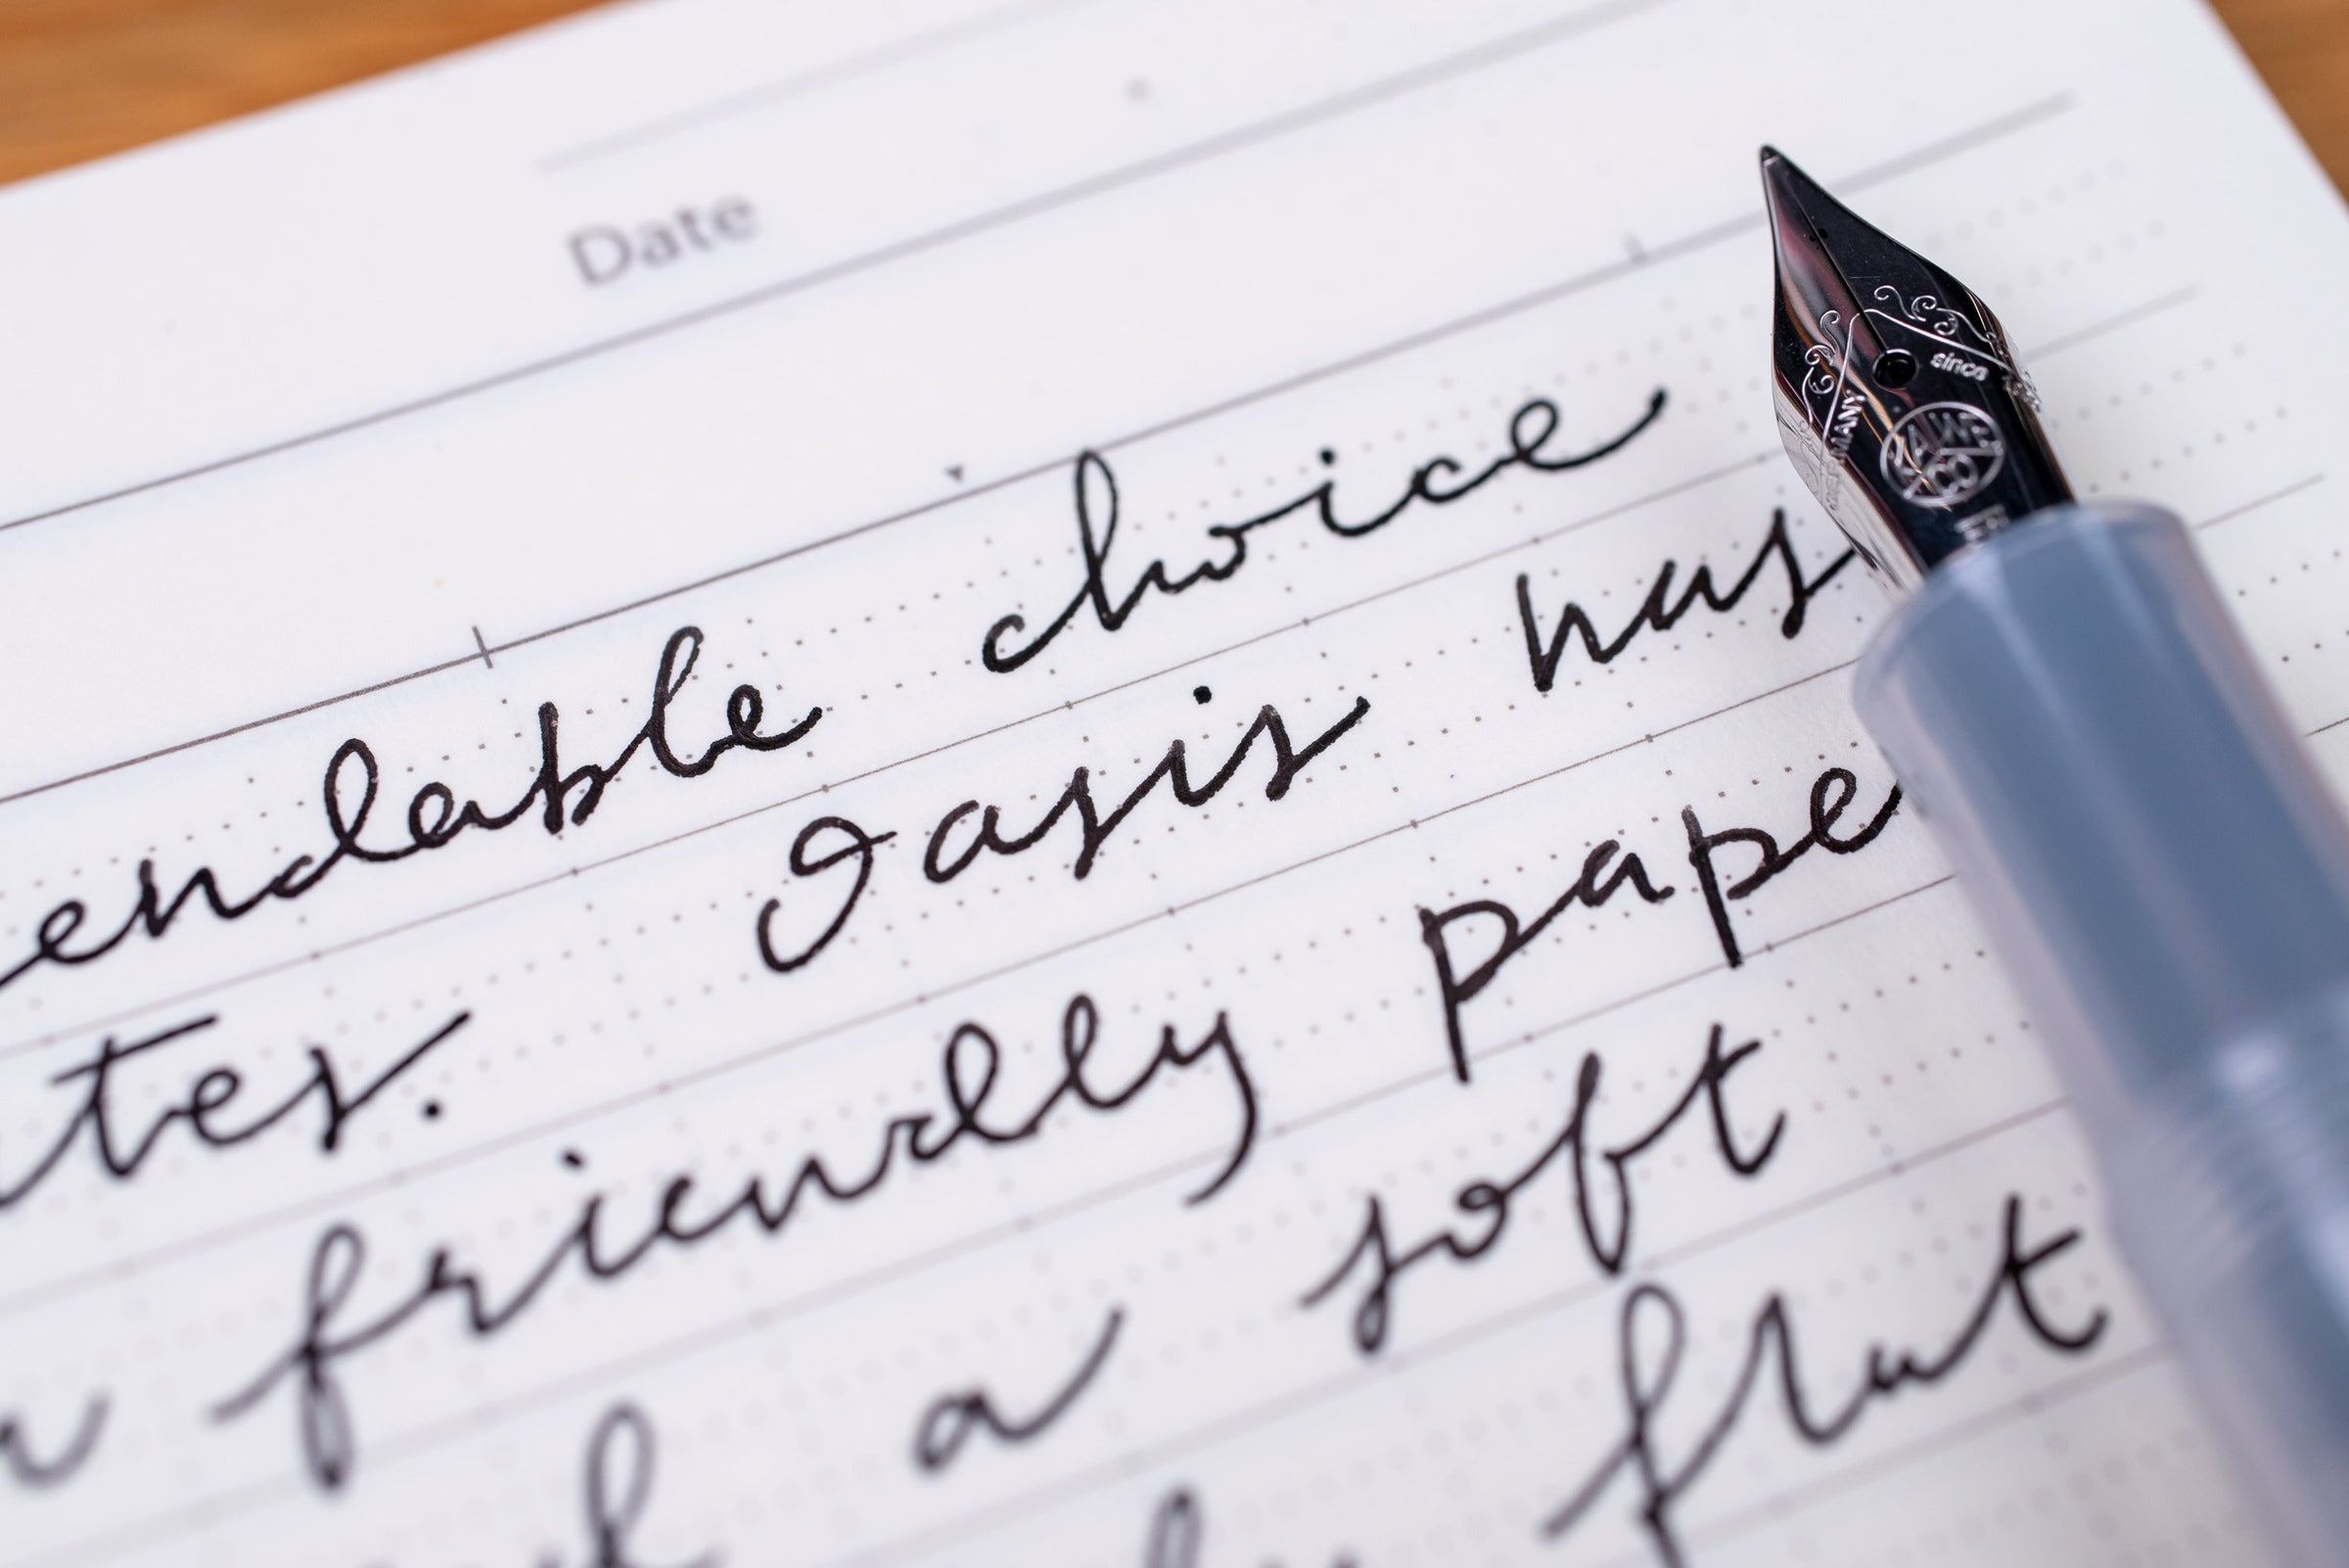 Date
endable choice
tes. Oasis has
friendly pape
a soft
flut
since
GERMANY